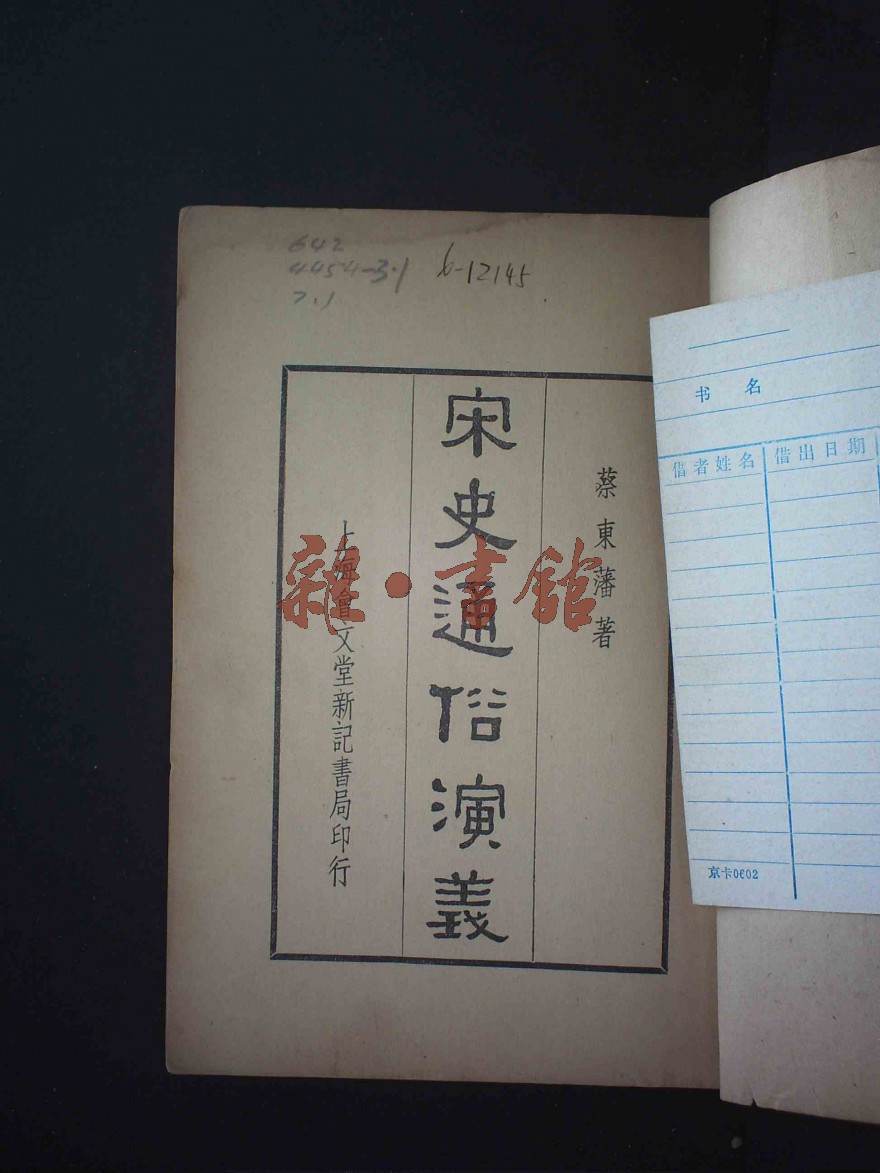 642
4454-3.1
7.1
6-12145
蔡東藩著
宋史通俗演義
上海會文堂新記書局印行
雜·書館
书名
借者姓名
借出日期
京卡0602